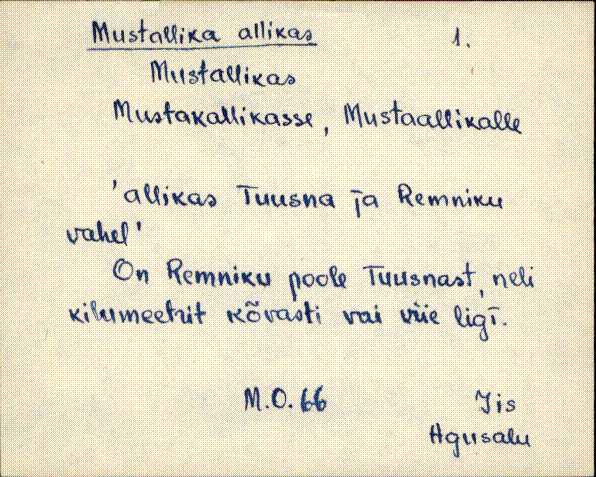 Mustallika allikas 1.
Mustallikas
Mustakallikasse, Mustaallikalle
'allikas Tuusna ja Remniku
vahel'
On Remniku poole Tuusnast, neli
kilumeetrit kõvasti vai viie ligi.
M.O. 66 Jis
Agusalu